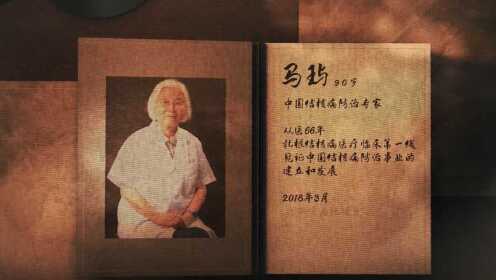 马玙 90岁
中国结核病防治专家
从医66年
扎根结核病医疗临床第一线
见证中国结核病防治事业的
建立和发展
2018年3月